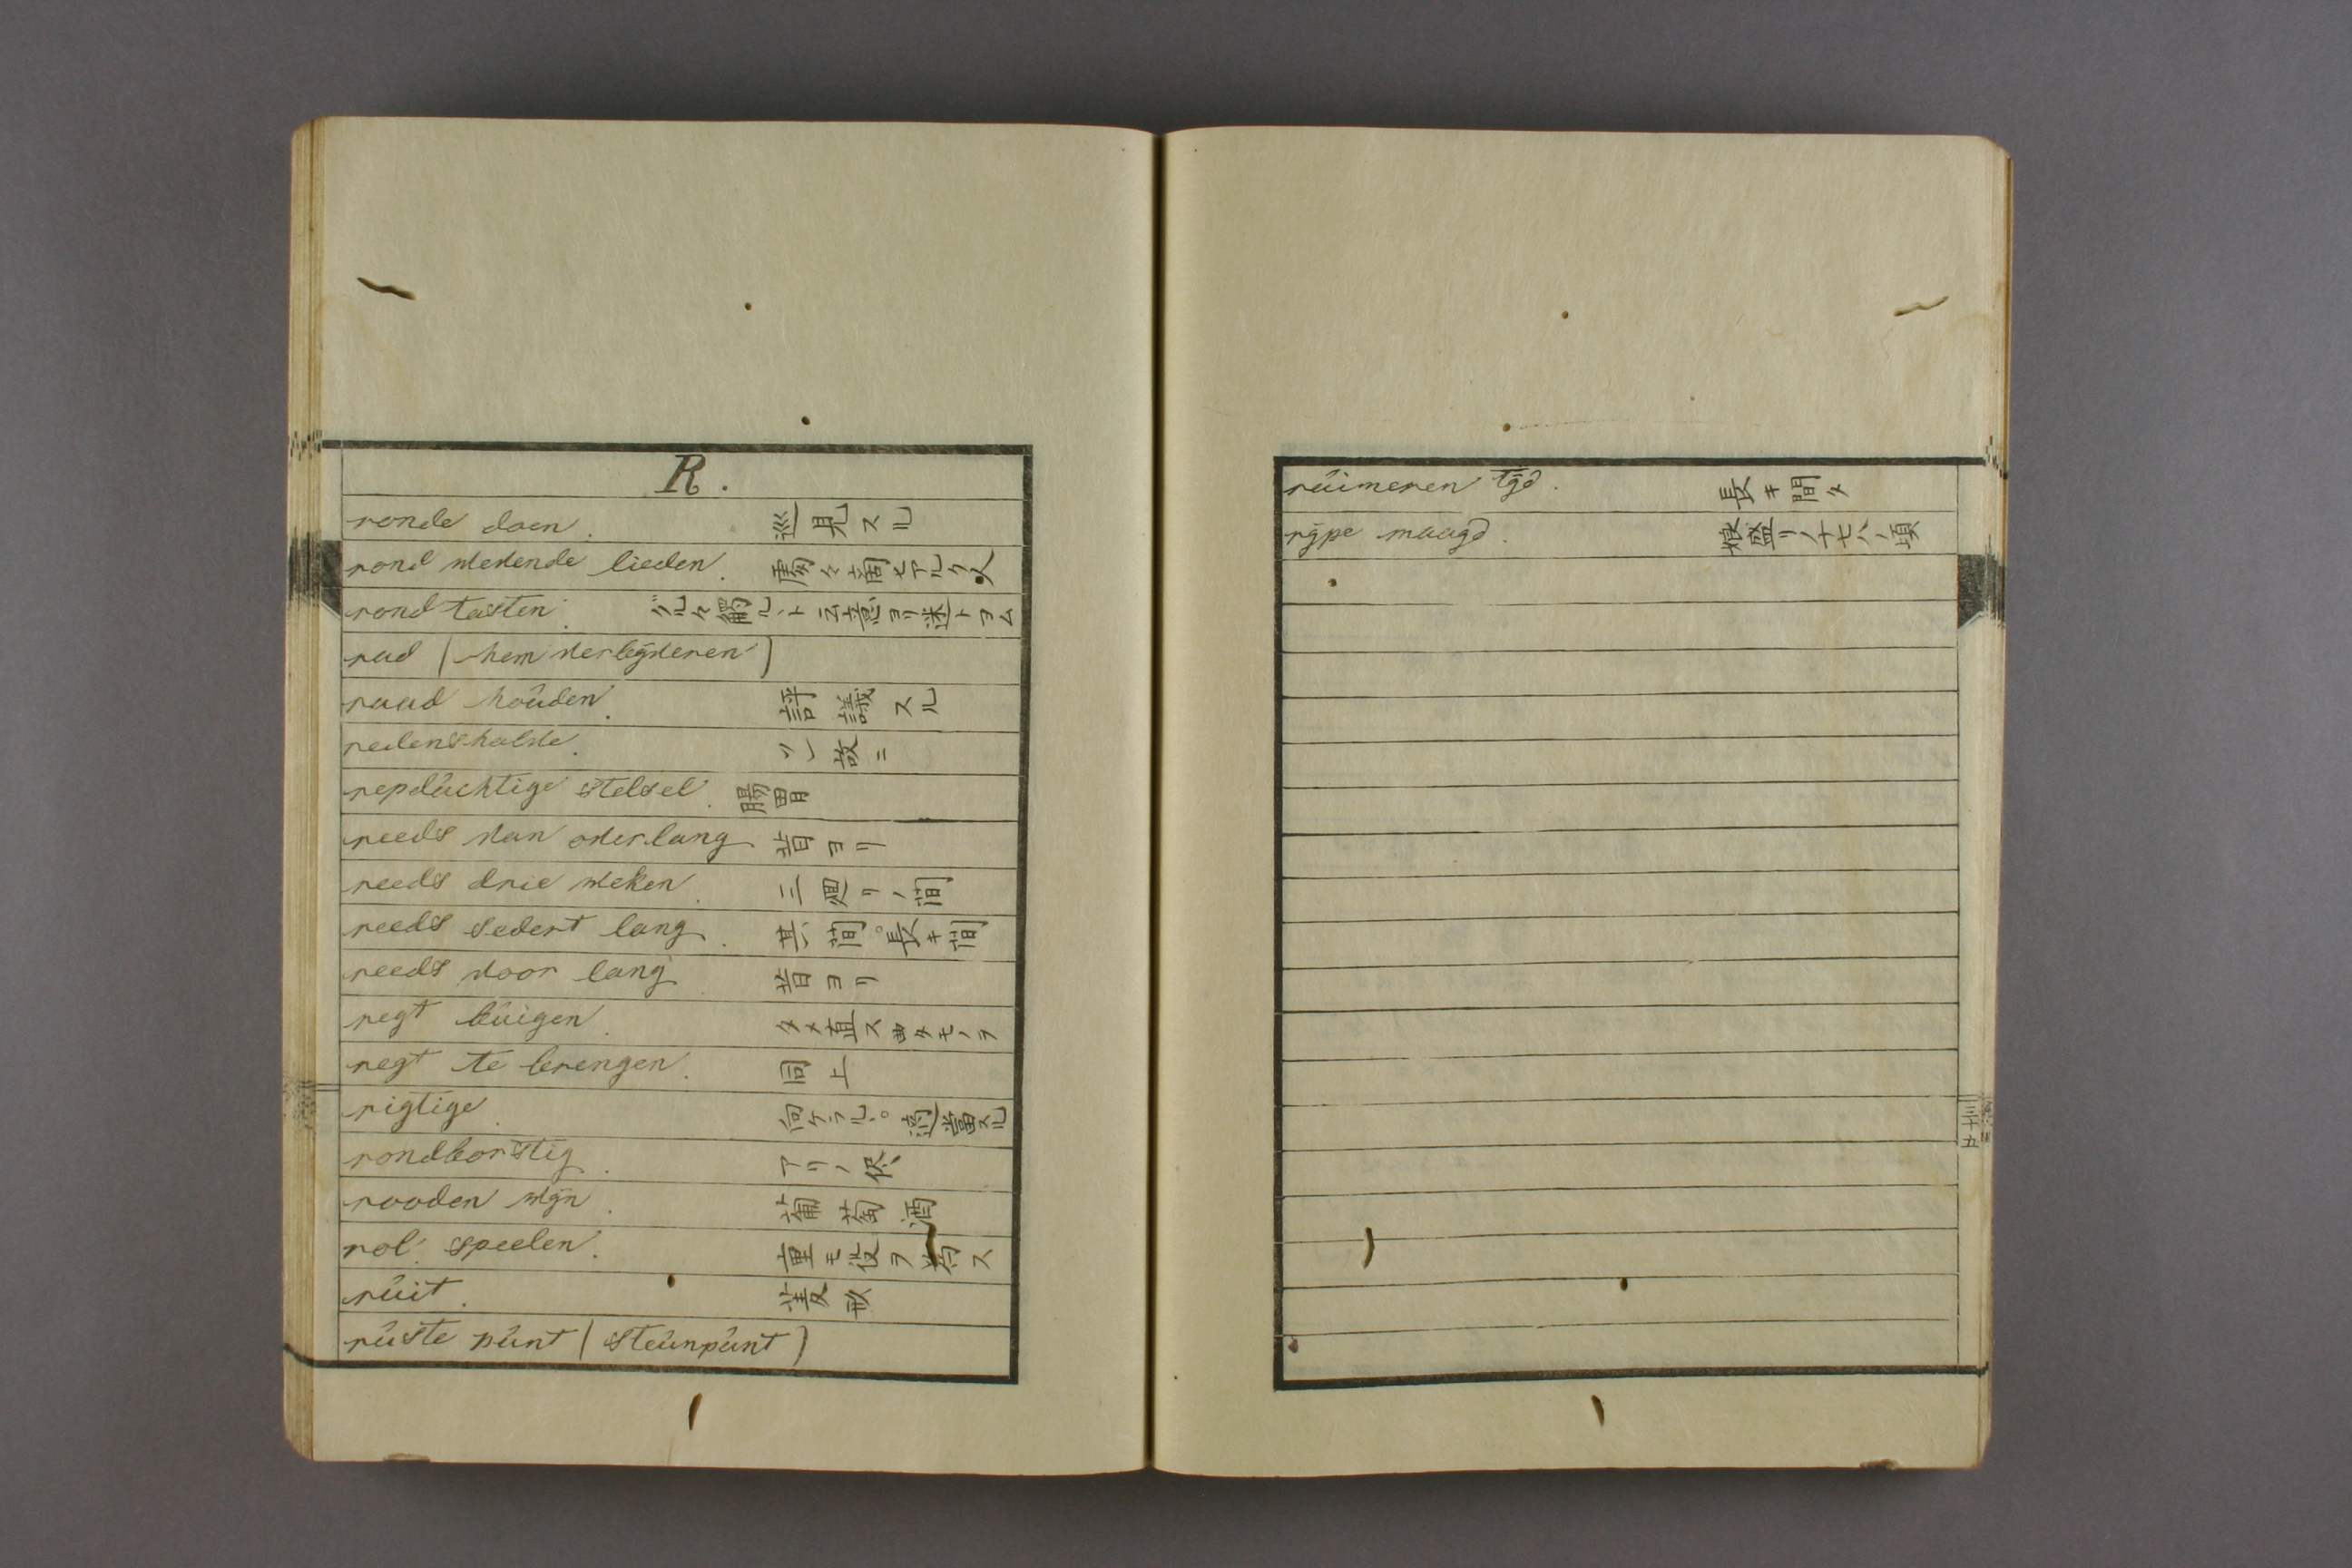 R.
ronde doen. 巡見スル
rond wevende lieden.
rond tasten. 觸ルト云意ヨリ迷トヨム
rad (hem verlijderen)
raad houden. 評議スル
redenshalve. 故ニ
repduchtige stelsel. 腸胃
reeds van over lang 昔ヨリ
reeds drie weken. 三廻リノ間
reeds sedert lang. 其間。長キ間
reeds voor lang 昔ヨリ
regt buigen. タメ直ス曲タモノヲ
regt te brengen. 同上
rigtige 適當スル
rondborstig. アリノ侭
rooden wijn. 葡萄酒
rol speelen. 重モ役ヲ為ス
ruit. 菱形
ruste punt (steunpunt)
ruimeren tijd. 長キ間タ
rijpe maagd. 娘盛リノ十七八ノ頃
三十五